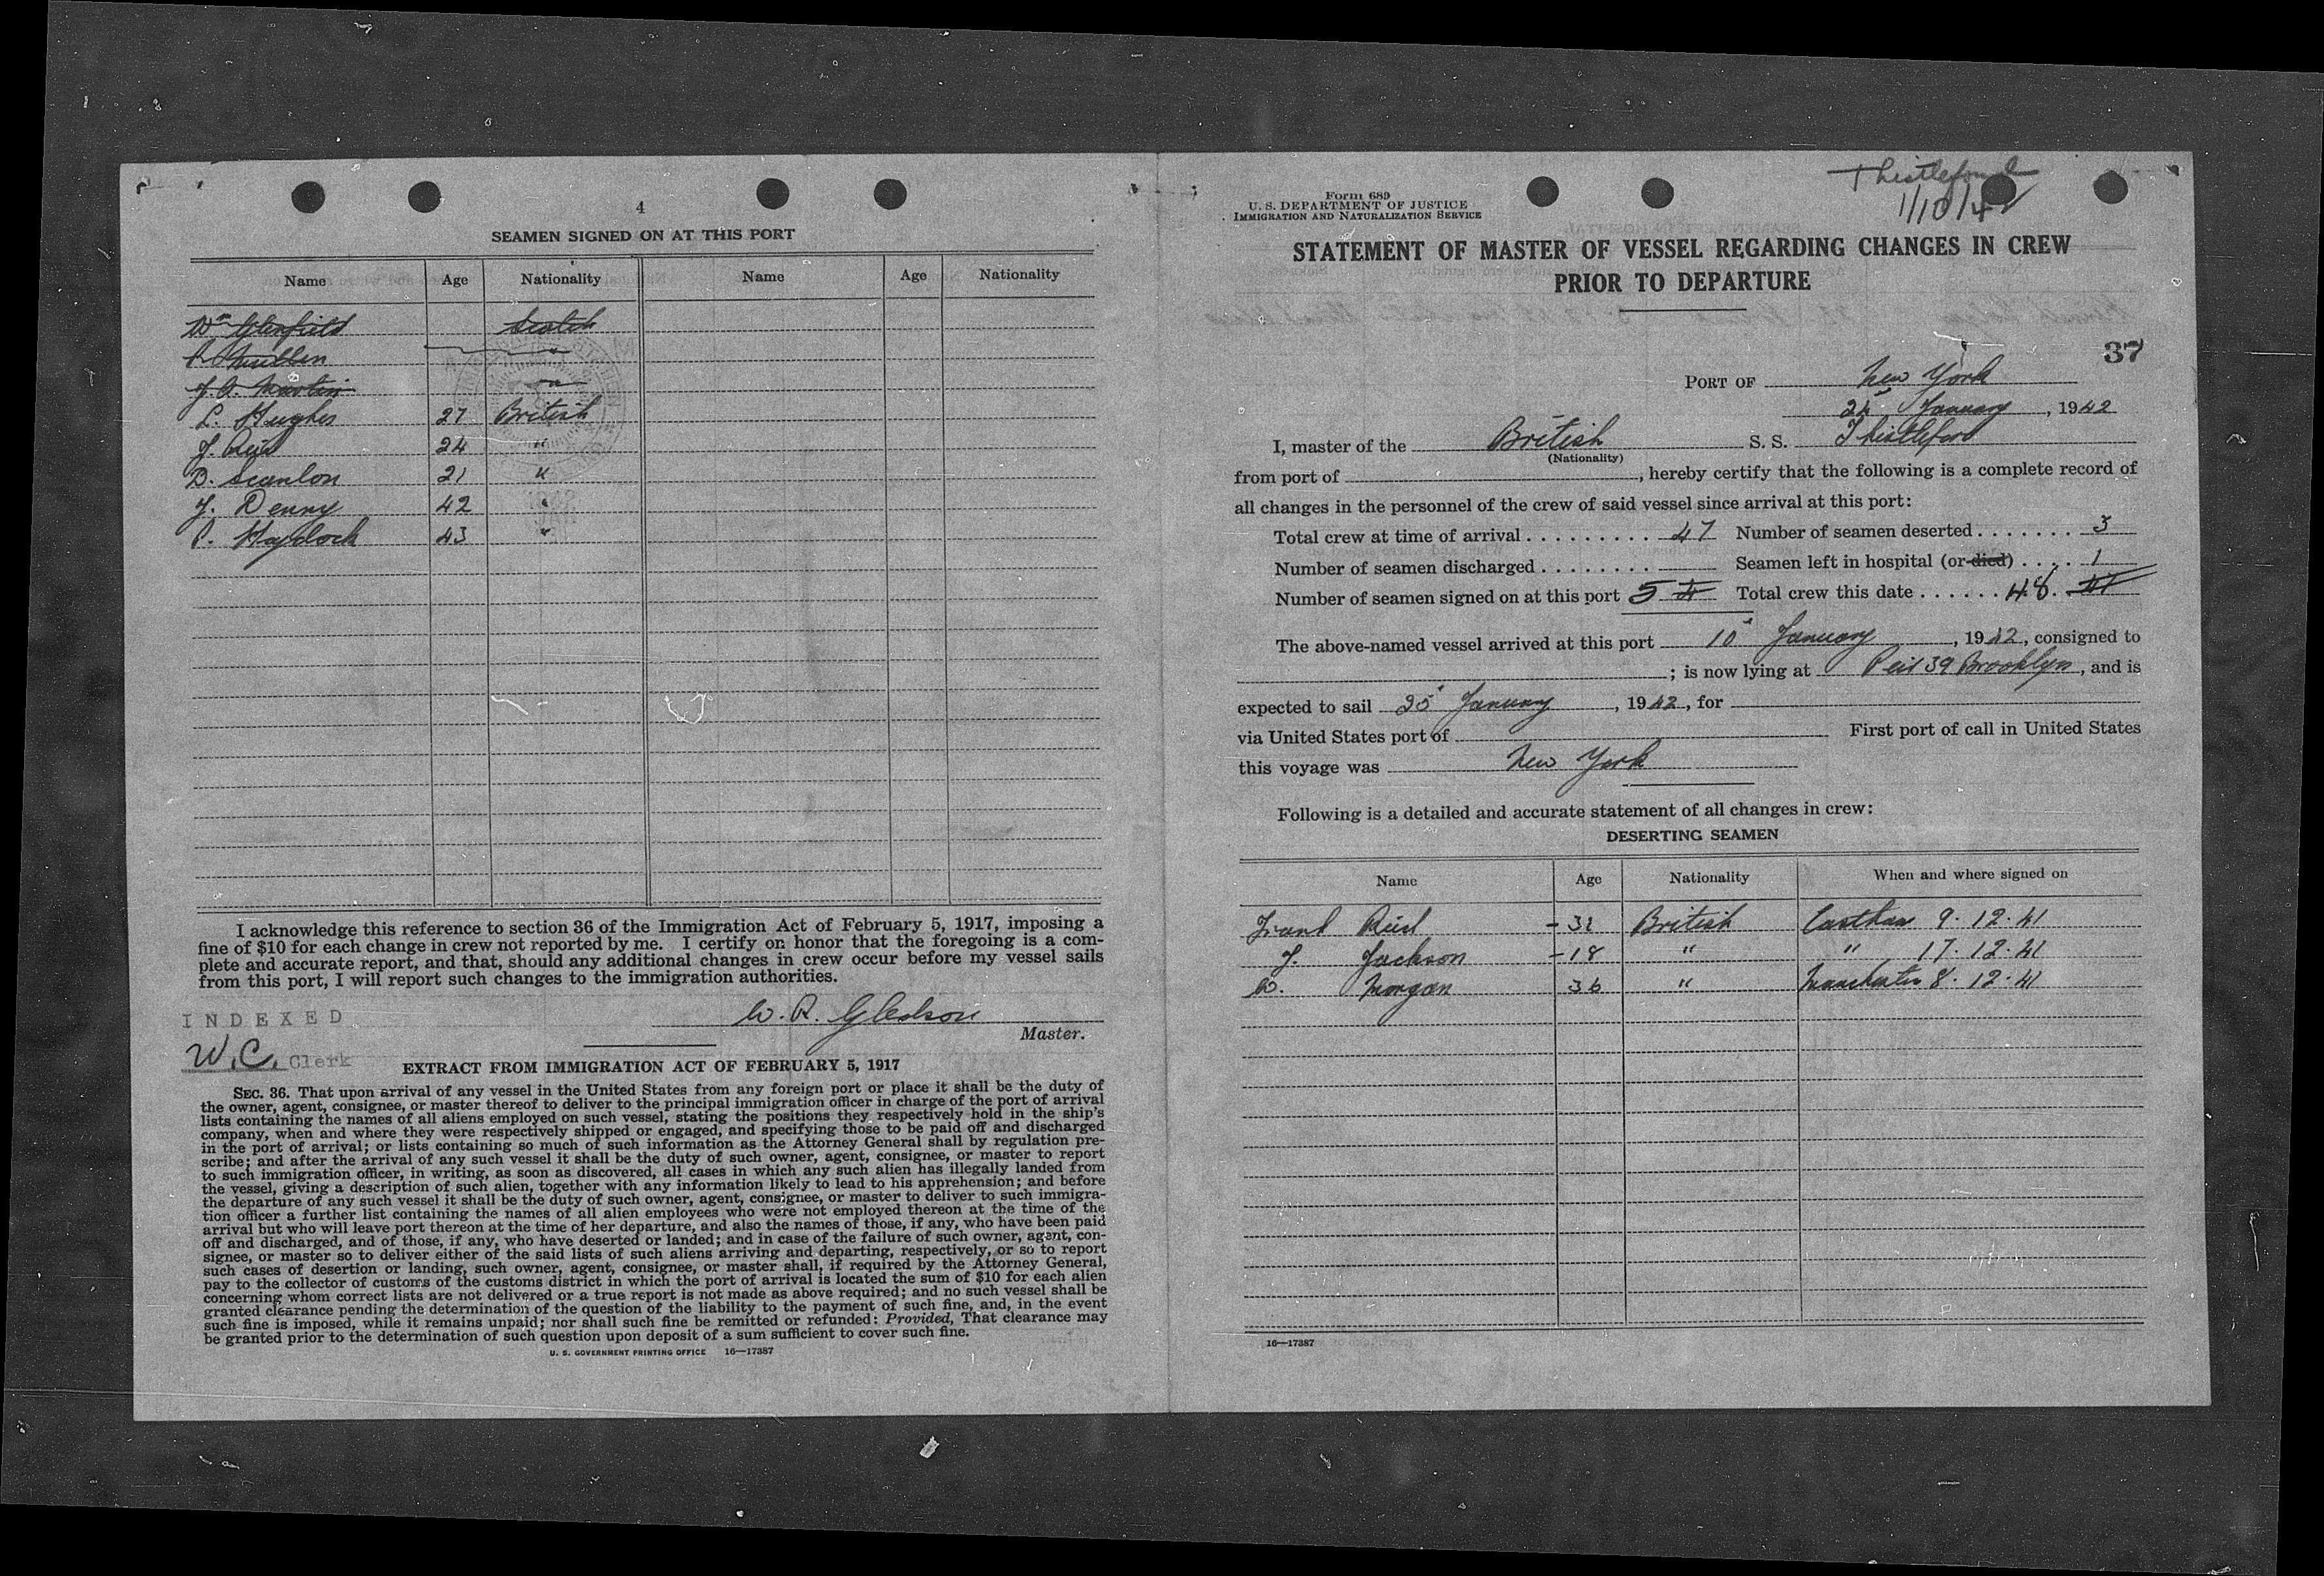 4
SEAMEN SIGNED ON AT THIS PORT
Name Age Nationality Name Age Nationality
Wm Glenfield Scotch
P. Mullen "
J. A. Martin "
L. Hughes 27 British
J. Reid 24 "
D. Scanlon 21 "
J. Denny 42 "
P. Haydock 43 "
I acknowledge this reference to section 36 of the Immigration Act of February 5, 1917, imposing a
fine of $10 for each change in crew not reported by me. I certify on honor that the foregoing is a com-
plete and accurate report, and that, should any additional changes in crew occur before my vessel sails
from this port, I will report such changes to the immigration authorities.
INDEXED
W. R. Gledson
Master.
W.C. Clerk
EXTRACT FROM IMMIGRATION ACT OF FEBRUARY 5, 1917
SEC. 36. That upon arrival of any vessel in the United States from any foreign port or place it shall be the duty of
the owner, agent, consignee, or master thereof to deliver to the principal immigration officer in charge of the port of arrival
lists containing the names of all aliens employed on such vessel, stating the positions they respectively hold in the ship's
company, when and where they were respectively shipped or engaged, and specifying those to be paid off and discharged
in the port of arrival; or lists containing so much of such information as the Attorney General shall by regulation pre-
scribe; and after the arrival of any such vessel it shall be the duty of such owner, agent, consignee, or master to report
to such immigration officer, in writing, as soon as discovered, all cases in which any such alien has illegally landed from
the vessel, giving a description of such alien, together with any information likely to lead to his apprehension; and before
the departure of any such vessel it shall be the duty of such owner, agent, consignee, or master to deliver to such immigra-
tion officer a further list containing the names of all alien employees who were not employed thereon at the time of the
arrival but who will leave port thereon at the time of her departure, and also the names of those, if any, who have been paid
off and discharged, and of those, if any, who have deserted or landed; and in case of the failure of such owner, agent, con-
signee, or master so to deliver either of the said lists of such aliens arriving and departing, respectively, or so to report
such cases of desertion or landing, such owner, agent, consignee, or master shall, if required by the Attorney General,
pay to the collector of customs of the customs district in which the port of arrival is located the sum of $10 for each alien
concerning whom correct lists are not delivered or a true report is not made as above required; and no such vessel shall be
granted clearance pending the determination of the question of the liability to the payment of such fine, and, in the event
such fine is imposed, while it remains unpaid; nor shall such fine be remitted or refunded: Provided, That clearance may
be granted prior to the determination of such question upon deposit of a sum sufficient to cover such fine.
U. S. GOVERNMENT PRINTING OFFICE 16—17387
Thistleford
1/10/42
Form 689
U. S. DEPARTMENT OF JUSTICE
IMMIGRATION AND NATURALIZATION SERVICE
STATEMENT OF MASTER OF VESSEL REGARDING CHANGES IN CREW
PRIOR TO DEPARTURE
37
PORT OF New York
24 January, 1942
I, master of the British S. S. Thistleford
(Nationality)
from port of , hereby certify that the following is a complete record of
all changes in the personnel of the crew of said vessel since arrival at this port:
Total crew at time of arrival 47 Number of seamen deserted 3
Number of seamen discharged Seamen left in hospital (or died) 1
Number of seamen signed on at this port 5 4 Total crew this date 48. 47
The above-named vessel arrived at this port 10 January, 1942, consigned to
; is now lying at Peir 39 Brooklyn, and is
expected to sail 25 January, 1942, for
via United States port of First port of call in United States
this voyage was New York
Following is a detailed and accurate statement of all changes in crew:
DESERTING SEAMEN
Name Age Nationality When and where signed on
Frank Reid - 32 British Eastham 9. 12. 41
J. Jackson - 18 " " 17. 12. 41
W. Morgan 36 " Manchester 8. 12. 41
16—17387